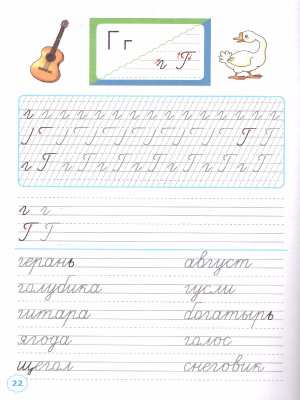 Г г
г Г
г г г г г г г г г г г г г г г
Г Г Г Г Г Г Г Г Г Г Г
г Г г Г г Г г Г г Г г Г
г г
Г Г
герань август
голубика гусли
гитара богатырь
ягода голос
щегол снеговик
22